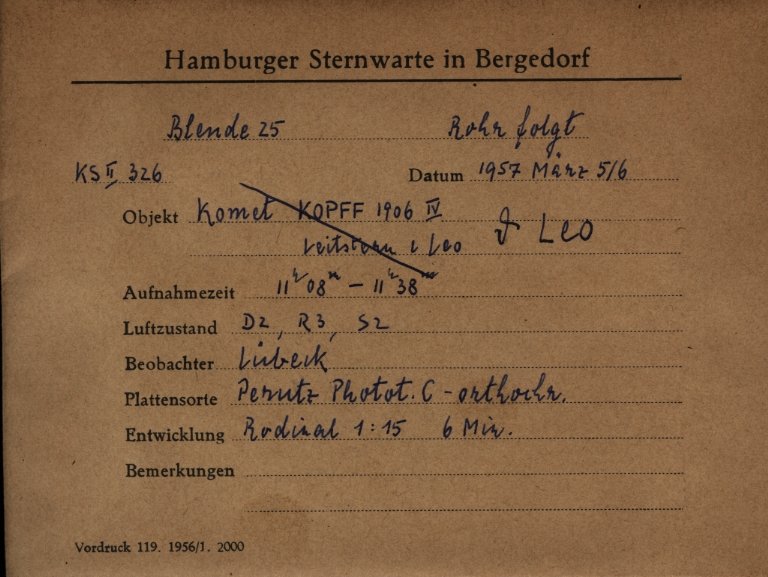 Hamburger Sternwarte in Bergedorf
Blende 25 Rohr folgt
KS II 326 Datum 1957 März 5/6
Objekt Komet KOPFF 1906 IV
Leitstern ι Leo ϑ Leo
Aufnahmezeit 11h 08m – 11h 38m
Luftzustand D2, R3, S2
Beobachter Lübeck
Plattensorte Perutz Photot. C - orthochr.
Entwicklung Rodinal 1:15 6 Min.
Bemerkungen
Vordruck 119. 1956/1. 2000